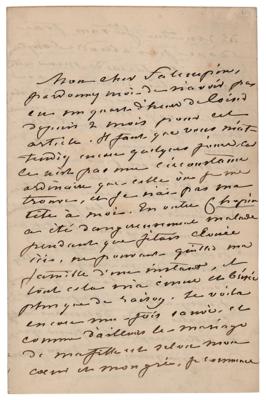 Mon cher Falempin,
pardonnez moi de n'avoir pas
eu un quart d'heure de loisir
depuis 2 mois pour cet
article. Il faut que vous m'at-
tendiez encore quelques jours, car
ce n'est pas une circonstance
ordinaire que celle où je me
trouve, et je n'ai pas ma
tête à moi. En outre Chopin
a été dangereusement malade
pendant que j'étais clouée
ici, ne pouvant quitter ma
famille d'un instant, et
tout cela m'a émue et
plus que de raison. Le voilà
encore une fois sauvé, et
comme d'ailleurs le mariage
de ma fille est selon mon
cœur et mon gré, je commence